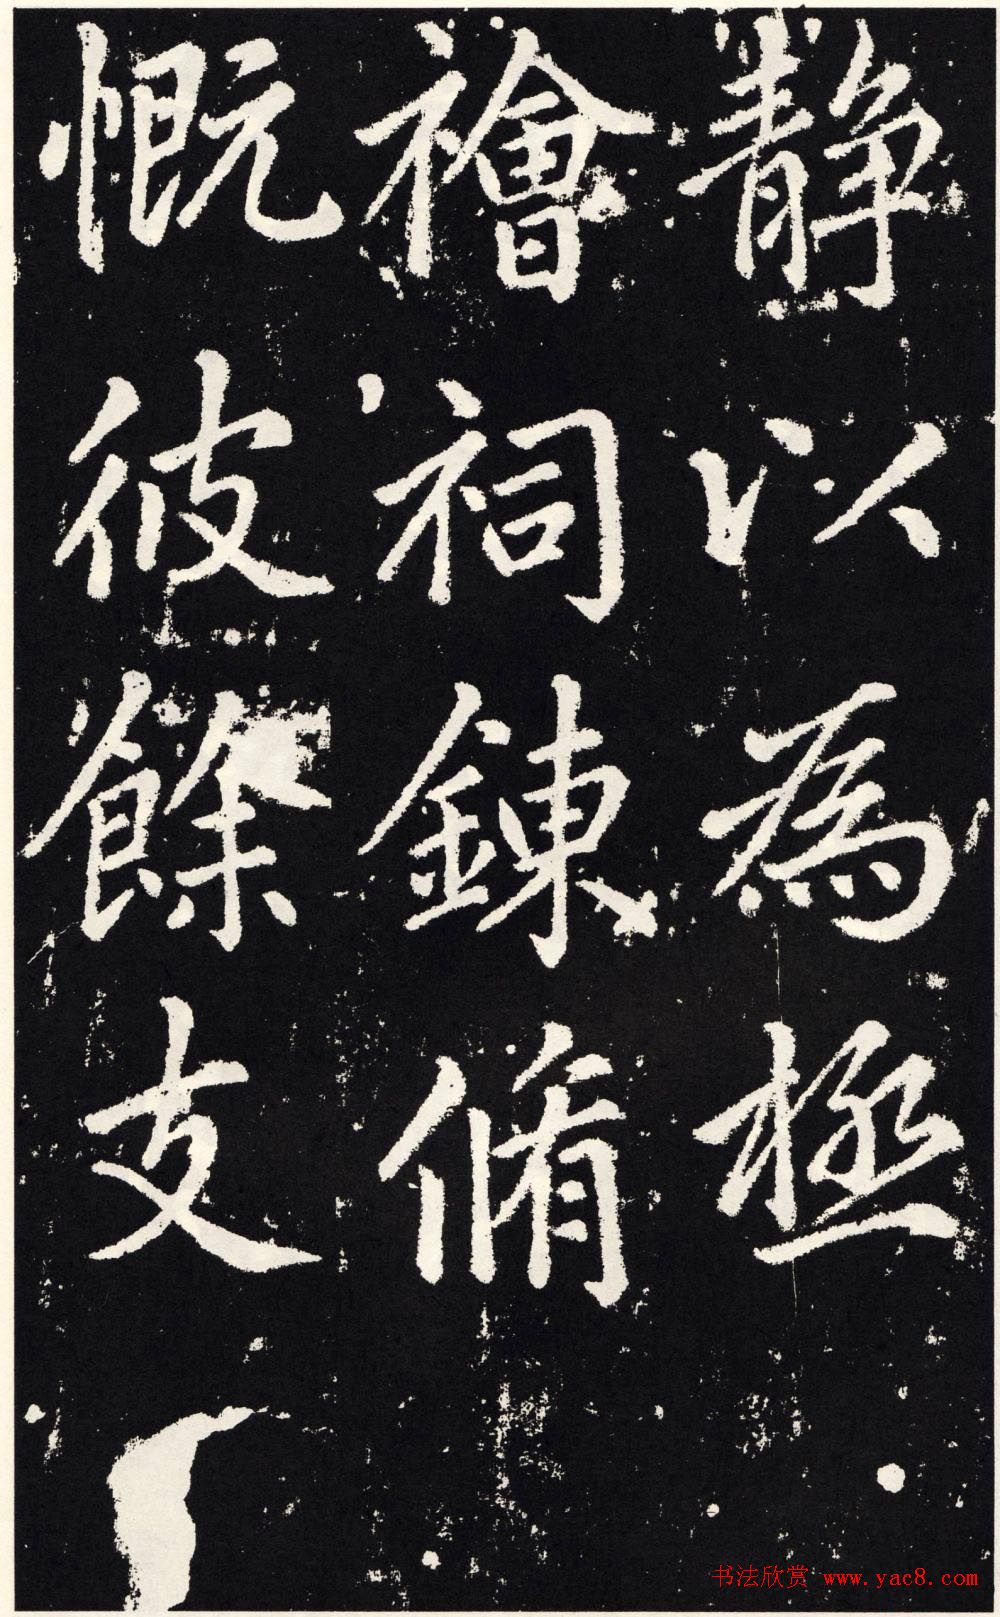 静以為極
禬祠鍊脩
慨彼餘支
书法欣赏 www.yac8.com